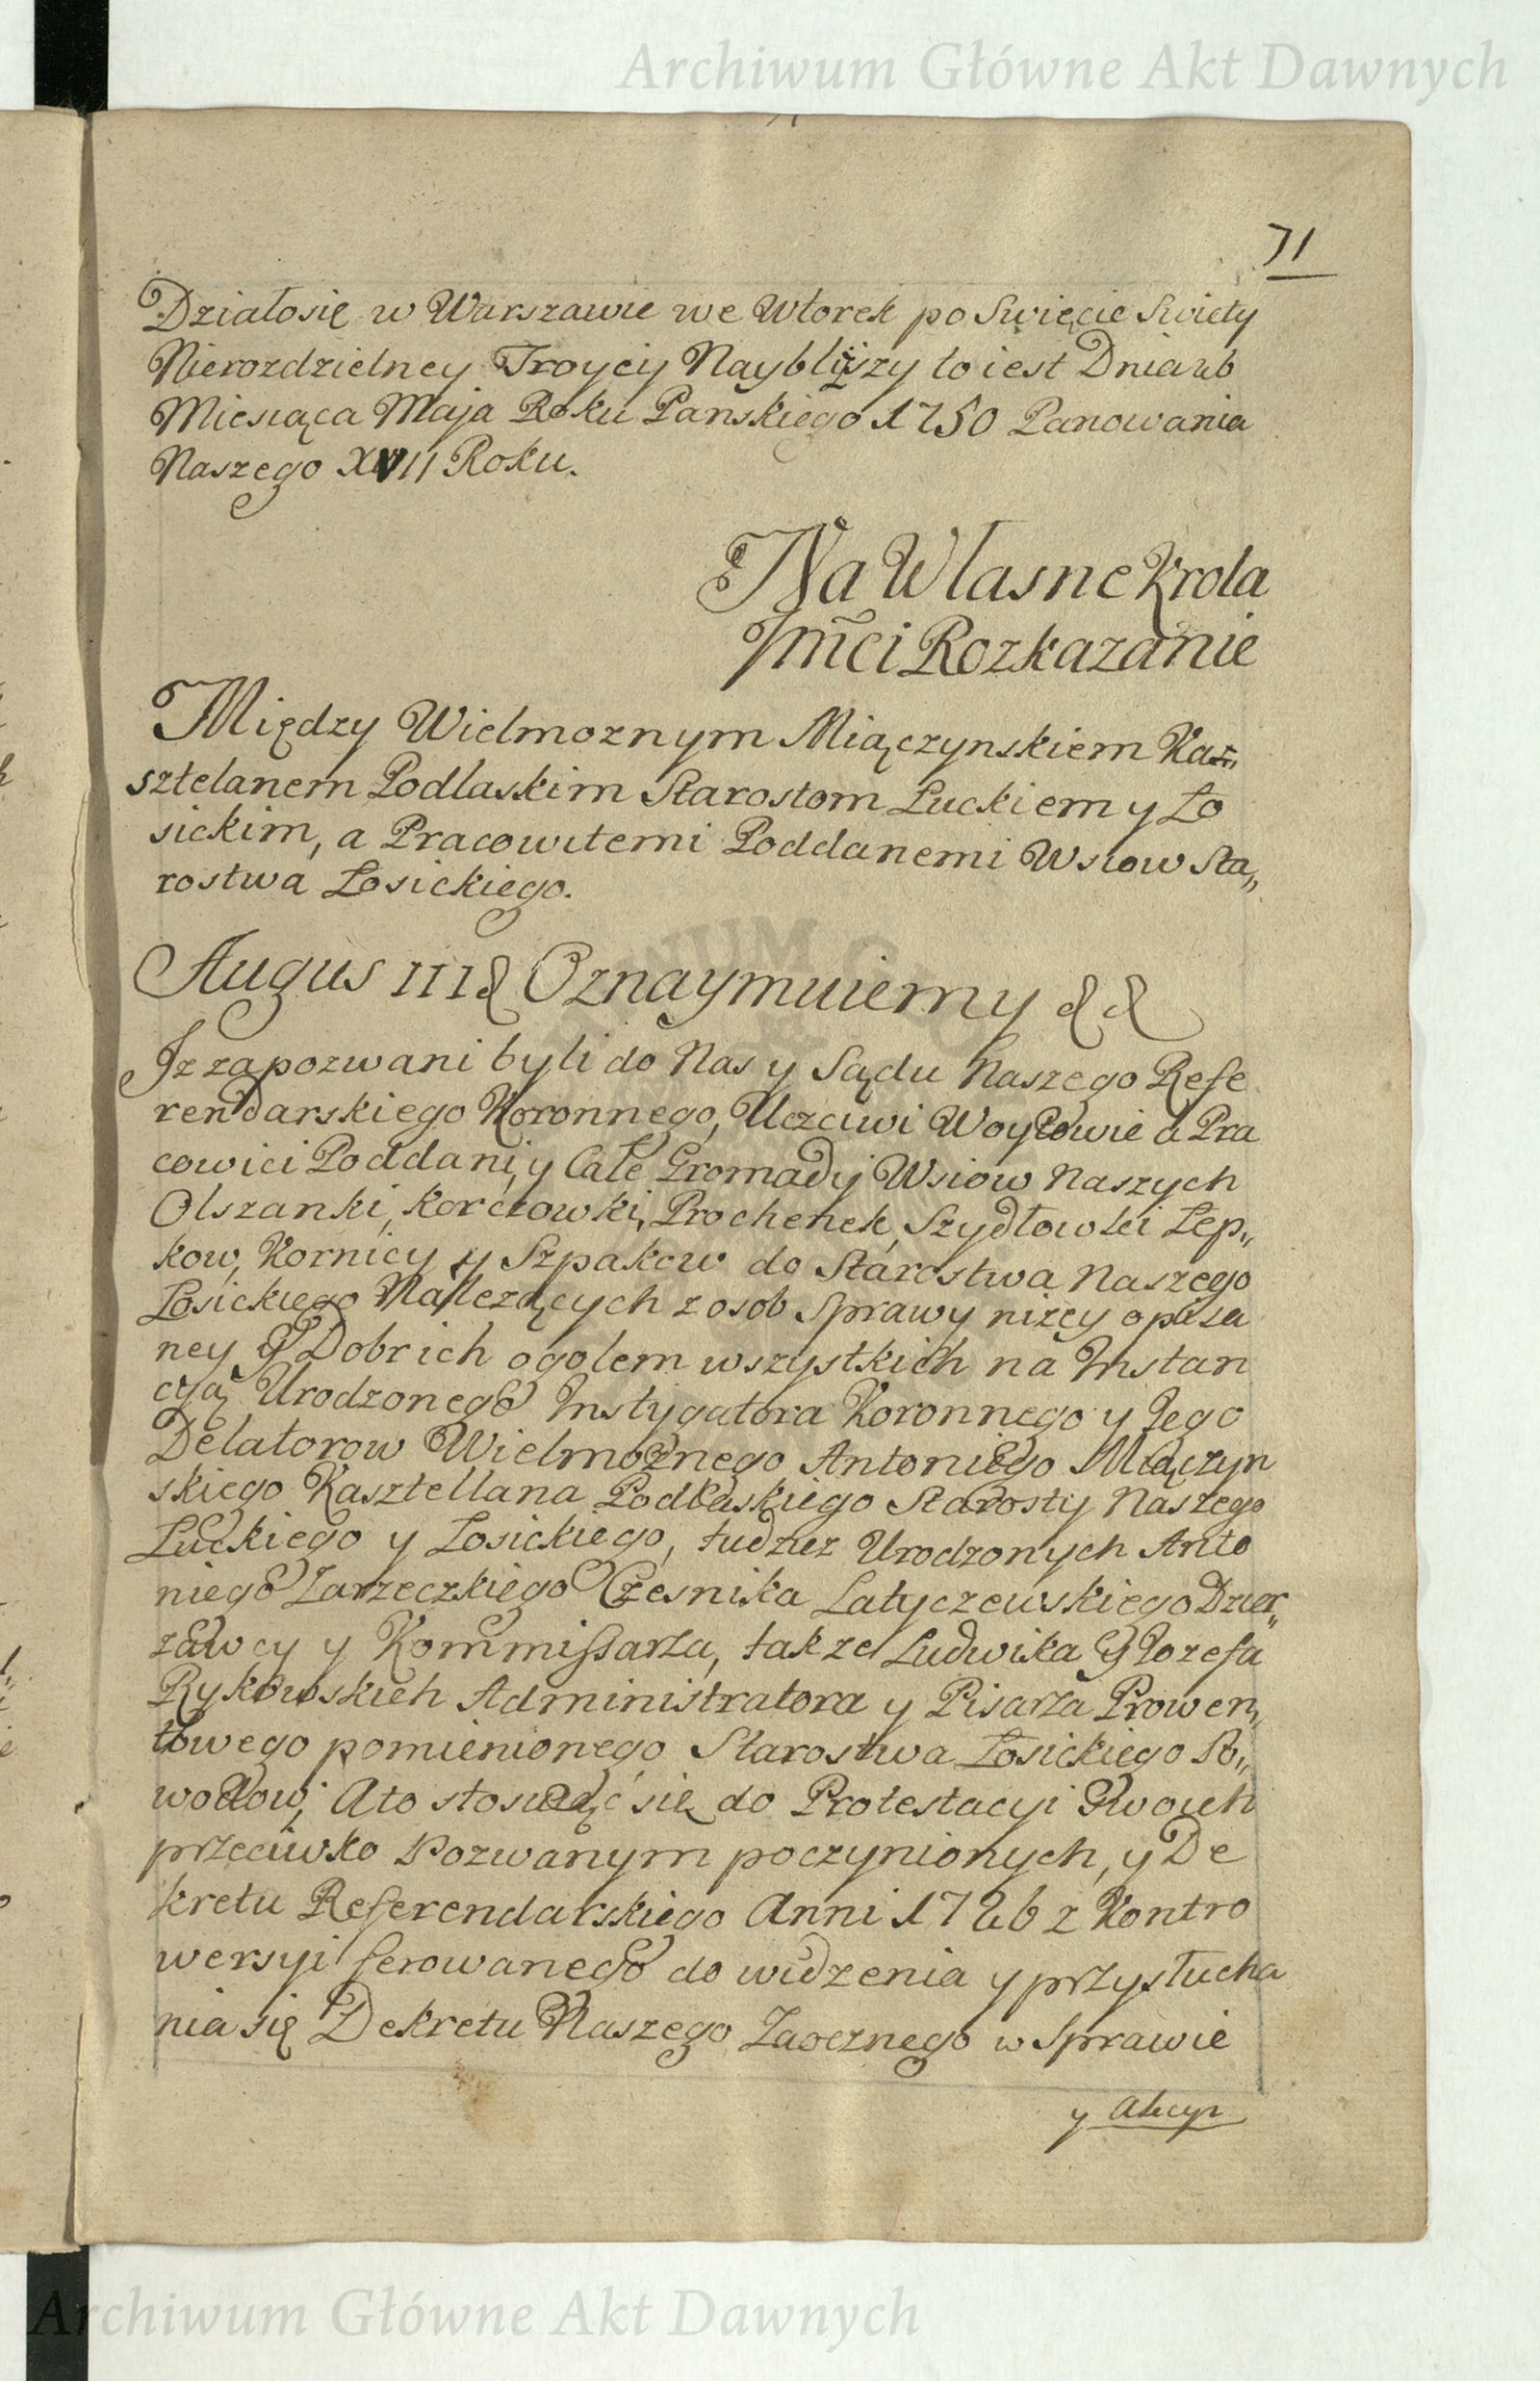 Archiwum Główne Akt Dawnych
71
Działosię w Warszawie we Wtorek po Swięcie Swięty
Nierozdzielney Troycy Naybliższy to iest Dnia 26
Miesiąca Maja Roku Panskiego 1750 Panowania
Naszego XVII Roku.
Na Własne Krola
Jmci Rozkazanie
Między Wielmoznym Miączynskiem Ka„
sztelanem Podlaskim Starostom Łuckiem y Ło
sickim, a Pracowitemi Poddanemi Wsiow Sta„
rostwa Łosickiego.
Augus III& Oznaymuiemy & &
Jz zapozwani byli do Nas y Sądu Naszego Refe
rendarskiego Koronnego, Uczciwi Woytowie a Pra
cowici Poddani, y Całe Gromady Wsiow Naszych
Olszanki, Korczowki, Prochenek, Szydłowki Łep„
kow, Kornicy y Szpakow do Starostwa Naszego
Łosickiego Należących z osob Sprawy niżey opisa
ney y Dobr ich ogolem wszystkich na Instan
cyą Urodzonego Instygatora Koronnego y Jego
Delatorow Wielmożnego Antoniego Miączyn
skiego Kasztellana Podlaskiego Starosty Naszego
Łuckiego y Łosickiego, tudziez Urodzonych Anto
niego Zarzeczkiego Czesnika Latyczewskiego Dzier„
zawcy y Kommissarza, takze Ludwika y Jozefa
Rykowskich Administratora y Pisarza Prowen„
towego pomienionego Starostwa Łosickiego Po„
wodow, A to stosuiąc się do Protestacyi Swoich
przeciwko Pozwanym poczynionych, y De
kretu Referendarskiego Anni 1726 z Kontro
wersyi ferowanego do widzenia y przysłucha
nia się Dekretu Naszego Zaocznego w Sprawie
y Akcyi
Archiwum Główne Akt Dawnych